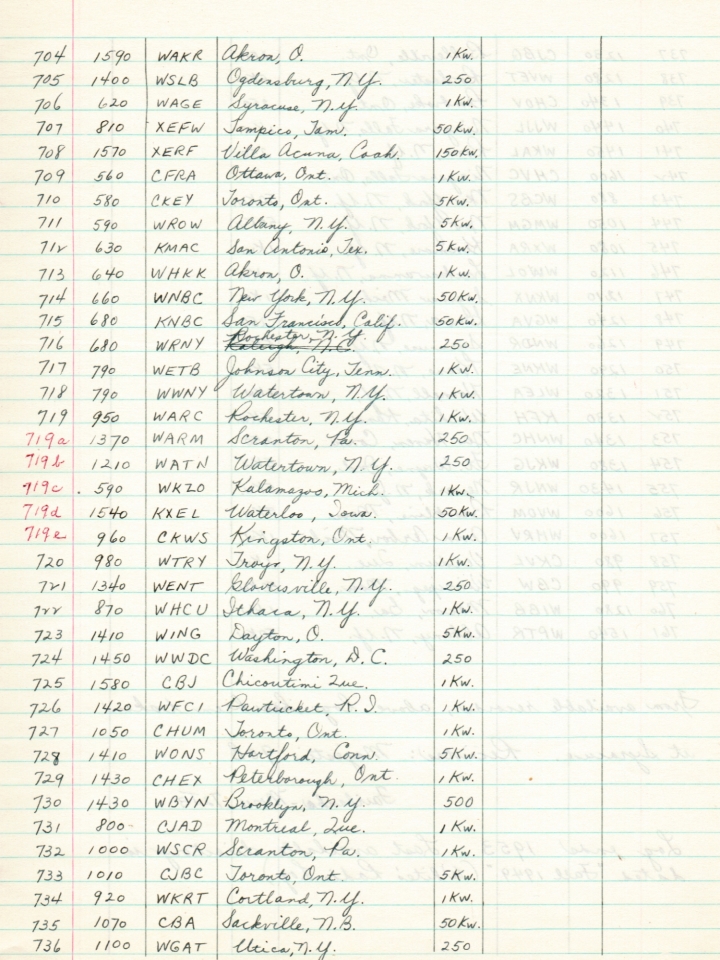 704 1590 WAKR Akron, O. 1Kw.
705 1400 WSLB Ogdensburg, N.Y. 250
706 620 WAGE Syracuse, N.Y. 1Kw.
707 810 XEFW Tampico, Tam. 50Kw.
708 1570 XERF Villa Acuna, Coah. 150Kw.
709 560 CFRA Ottawa, Ont. 1Kw.
710 580 CKEY Toronto, Ont. 5Kw.
711 590 WROW Albany, N.Y. 5Kw.
712 630 KMAC San Antonio, Tex. 5Kw.
713 640 WHKK Akron, O. 1Kw.
714 660 WNBC New York, N.Y. 50Kw.
715 680 KNBC San Francisco, Calif. 50Kw.
Rochester, N.Y.
716 680 WRNY Raleigh, N.C. 250
717 790 WETB Johnson City, Tenn. 1Kw.
718 790 WWNY Watertown, N.Y. 1Kw.
719 950 WARC Rochester, N.Y. 1Kw.
719a 1370 WARM Scranton, Pa. 250
719b 1210 WATN Watertown, N.Y. 250
719c 590 WKZO Kalamazoo, Mich. 1Kw.
719d 1540 KXEL Waterloo, Iowa. 50Kw.
719e 960 CKWS Kingston, Ont. 1Kw.
720 980 WTRY Troy, N.Y. 1Kw.
721 1340 WENT Gloversville, N.Y. 250
722 870 WHCU Ithaca, N.Y. 1Kw.
723 1410 WING Dayton, O. 5Kw.
724 1450 WWDC Washington, D.C. 250
725 1580 CBJ Chicoutimi Que. 1Kw.
726 1420 WFCI Pawtucket, R.I. 1Kw.
727 1050 CHUM Toronto, Ont. 1Kw.
728 1410 WONS Hartford, Conn. 5Kw.
729 1430 CHEX Peterborough, Ont. 1Kw.
730 1430 WBYN Brooklyn, N.Y. 500
731 800 CJAD Montreal, Que. 1Kw.
732 1000 WSCR Scranton, Pa. 1Kw.
733 1010 CJBC Toronto, Ont. 5Kw.
734 920 WKRT Cortland, N.Y. 1Kw.
735 1070 CBA Sackville, N.B. 50Kw.
736 1100 WGAT Utica, N.Y. 250